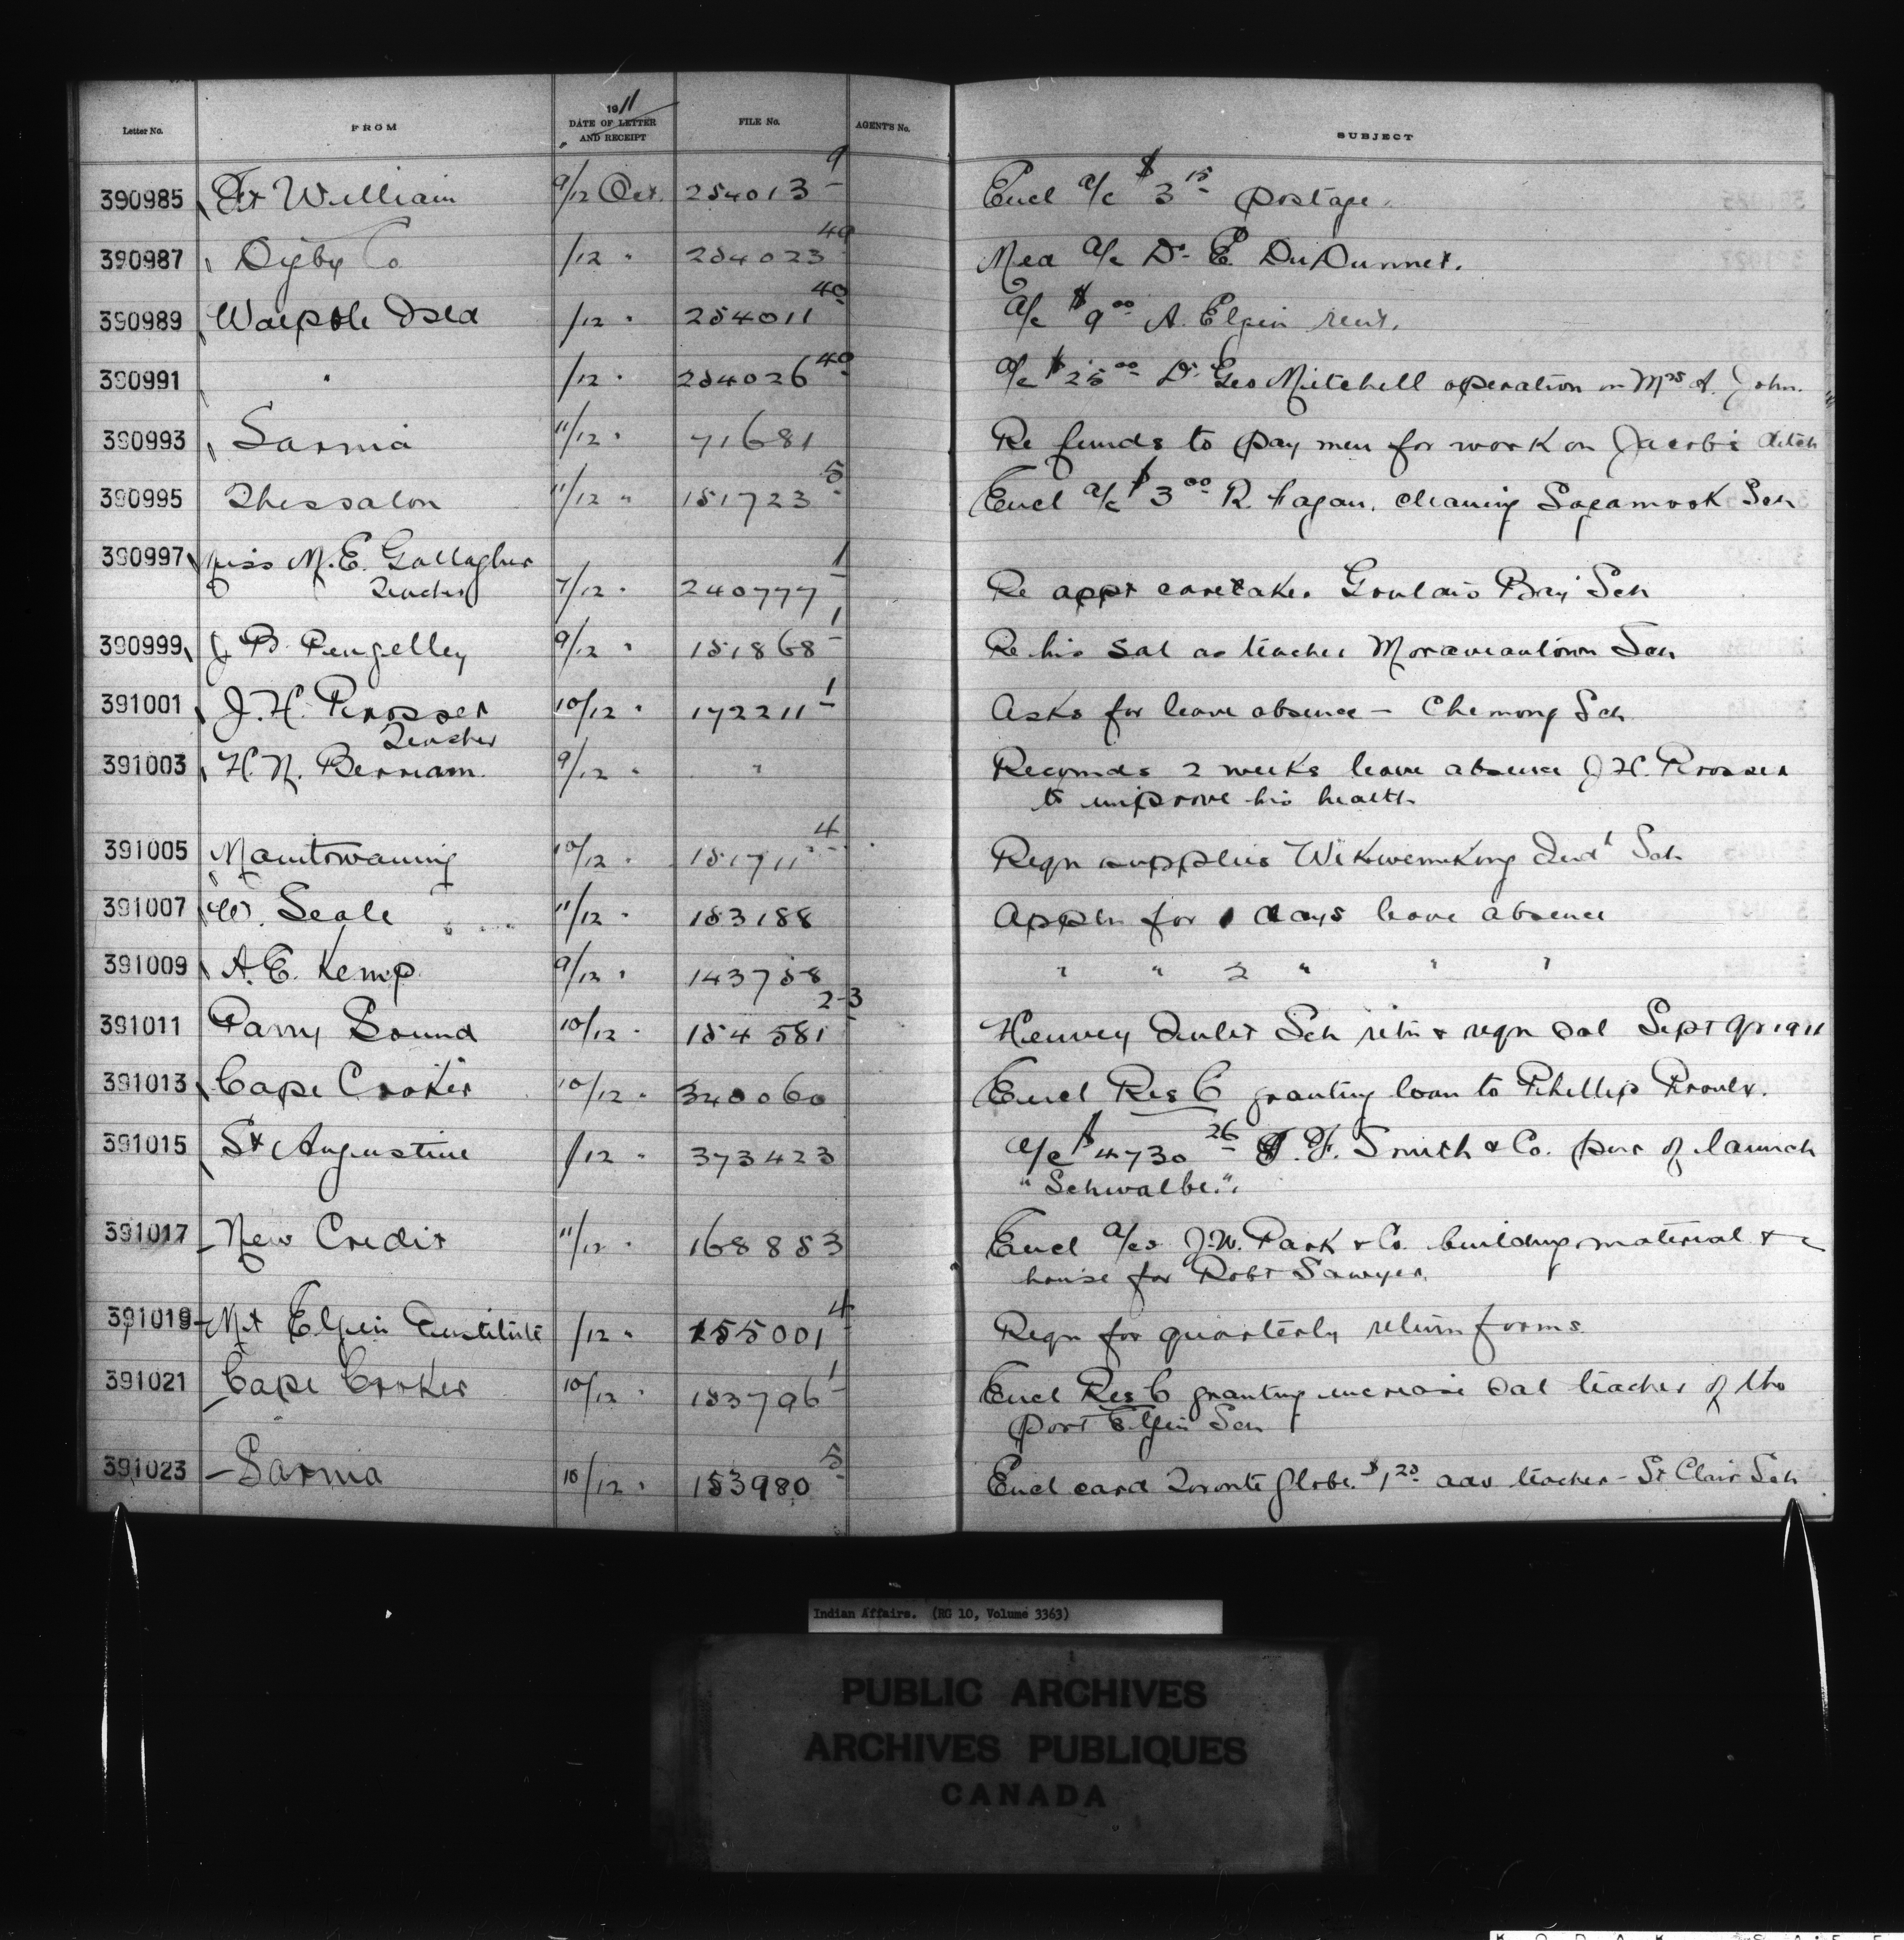 Letter No. FROM 1911 DATE OF LETTER AND RECEIPT FILE No. AGENT'S No. SUBJECT
390985 Ft William 9/12 Oct. 254013 9 Encl a/c $3 15 postage.
390987 Digby Co /12 " 254023 40 Med a/c Dr. E.
390989 Walpole Isld /12 " 254011 40 a/c $9 00 A. Elgin rent.
390991 " /12 " 254026 40 a/c $25 00 Dr. Geo Mitchell operation on Mrs A. John.
390993 Sarnia 11/12 " 71681 Re funds to pay men for work on Jacobs ditch
390995 Thessalon 11/12 " 151723 5 Encl a/c $3 00 R. Fagan, cleaning Sagamook Sch
390997 Miss M. E. Gallagher
Teacher 7/12 " 240777 1 Re appt caretaker Goulais Bay Sch
390999 J B. Pengelley 9/12 " 151868 1 Re his sal as teacher Moraviantown Sch
391001 J. H. Prosser 10/12 " 172211 1 Asks for leave absence - Chemong Sch
Teacher
391003 H. N. Berriam. 9/12 " " Recomds 2 weeks leave absence J H. Prosser
to improve his health
391005 Manitowaning 10/12 " 151711 4 Reqn supplies Wikwemikong Indl Sch
391007 W. Seale 11/12 " 153188 Appln for 1 days leave absence
391009 A. E. Kemp 9/12 " 143758 " " 2 " " "
391011 Parry Sound 10/12 " 154581 2-3 Henvey Inlet Sch retn & reqn sal Sept qr 1911
391013 Cape Croker 10/12 " 340060 Encl Res C granting loan to Phillip Proulx.
391015 St Augustine /12 " 373423 a/c $4730 26 J. F. Smith & Co. pur of launch
"Schwalbe".
391017 New Credit 11/12 " 168853 Encl a/cs J. W. Park & Co. building material &c
house for Robt Sawyer.
391019 Mt Elgin Institute /12 " 155001 4 Reqn for quarterly return forms.
391021 Cape Croker 10/12 " 153796 1 Encl Res C granting increase sal teacher of the
port Elgin Sch
391023 Sarnia 10/12 " 153980 5 Encl card Toronto Globe. $1 25 adv teacher - St Clair Sch
Indian Affairs. (RG 10, Volume 3363)
PUBLIC ARCHIVES
ARCHIVES PUBLIQUES
CANADA